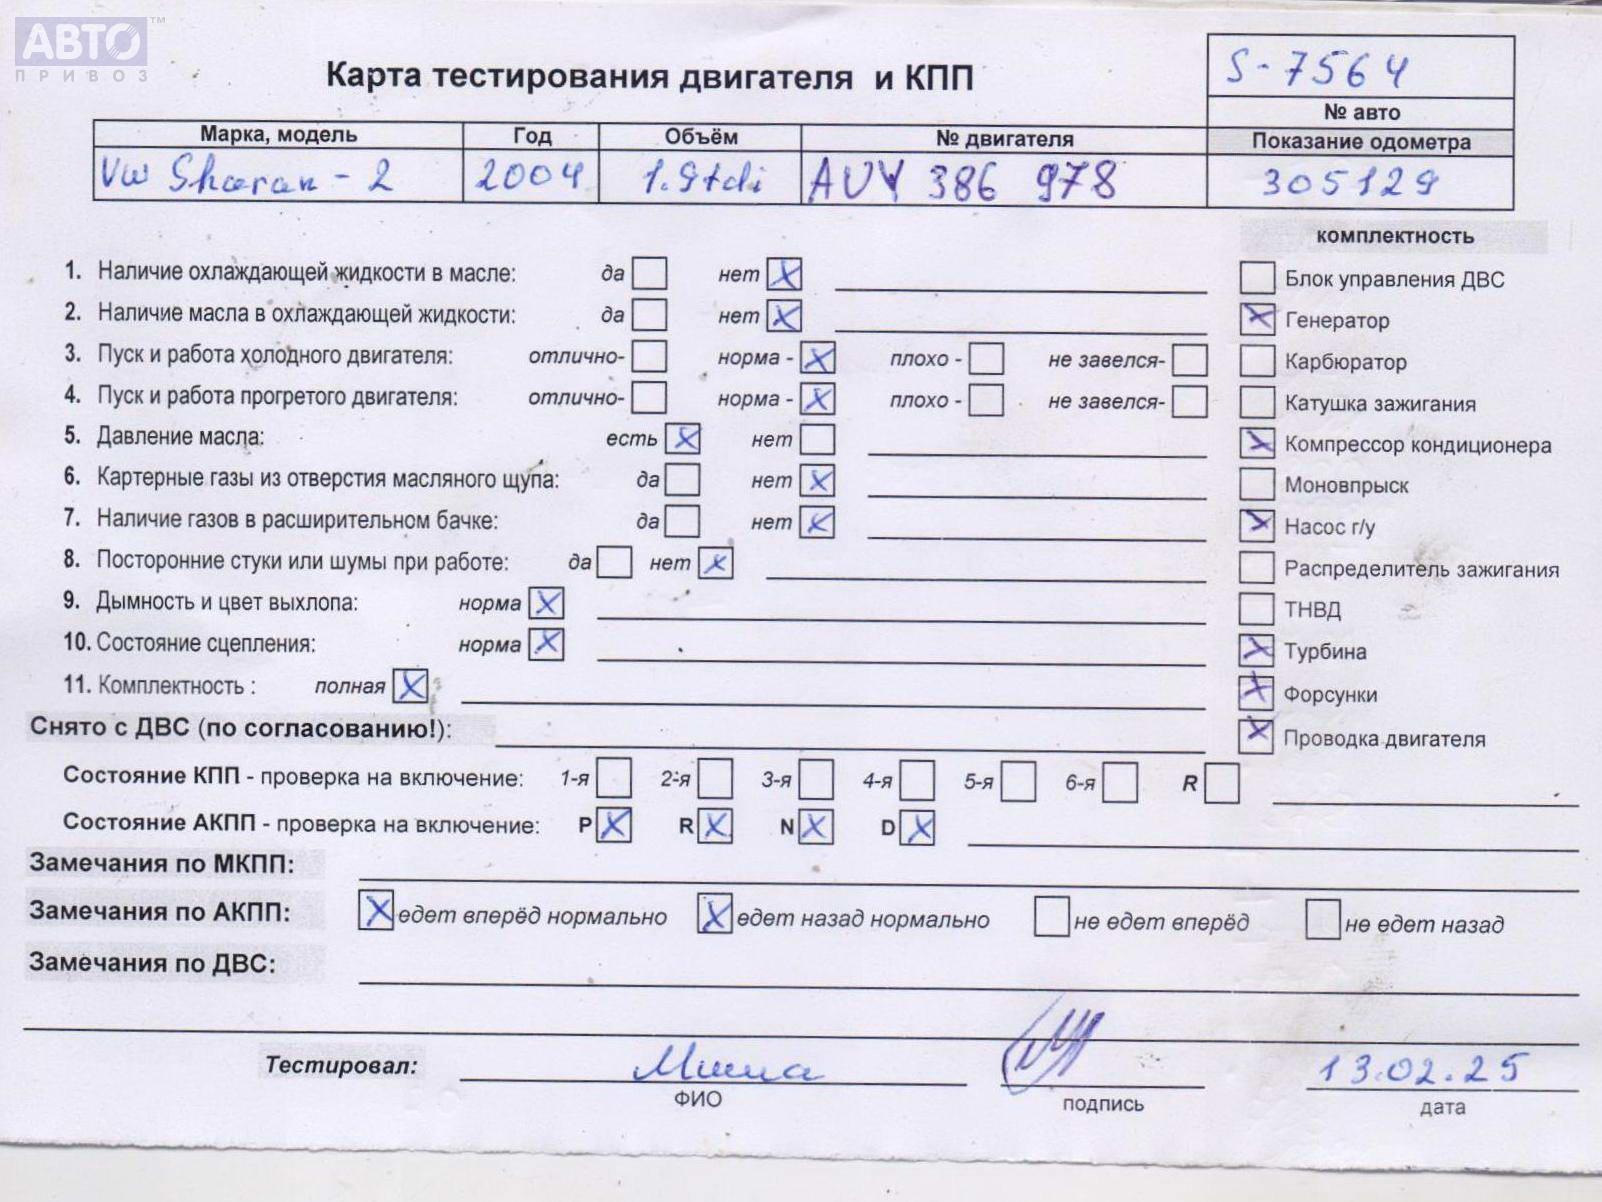 АВТО™
ПРИВОЗ
Карта тестирования двигателя и КПП
S-7564
№ авто
Марка, модель Год Объём № двигателя Показание одометра
VW Sharan-2 2004 1.9tdi AUY 386 978 305129
комплектность
1. Наличие охлаждающей жидкости в масле: да нет X
2. Наличие масла в охлаждающей жидкости: да нет X
3. Пуск и работа холодного двигателя: отлично- норма - X плохо - не завелся-
4. Пуск и работа прогретого двигателя: отлично- норма - X плохо - не завелся-
5. Давление масла: есть X нет
6. Картерные газы из отверстия масляного щупа: да нет X
7. Наличие газов в расширительном бачке: да нет X
8. Посторонние стуки или шумы при работе: да нет X
9. Дымность и цвет выхлопа: норма X
10. Состояние сцепления: норма X
11. Комплектность : полная X
Блок управления ДВС
X Генератор
Карбюратор
Катушка зажигания
X Компрессор кондиционера
Моновпрыск
X Насос г/у
Распределитель зажигания
ТНВД
X Турбина
X Форсунки
X Проводка двигателя
Снято с ДВС (по согласованию!):
Состояние КПП - проверка на включение: 1-я 2-я 3-я 4-я 5-я 6-я R
Состояние АКПП - проверка на включение: P X R X N X D X
Замечания по МКПП:
Замечания по АКПП: X едет вперёд нормально X едет назад нормально не едет вперёд не едет назад
Замечания по ДВС:
Тестировал: Миша 13.02.25
ФИО подпись дата